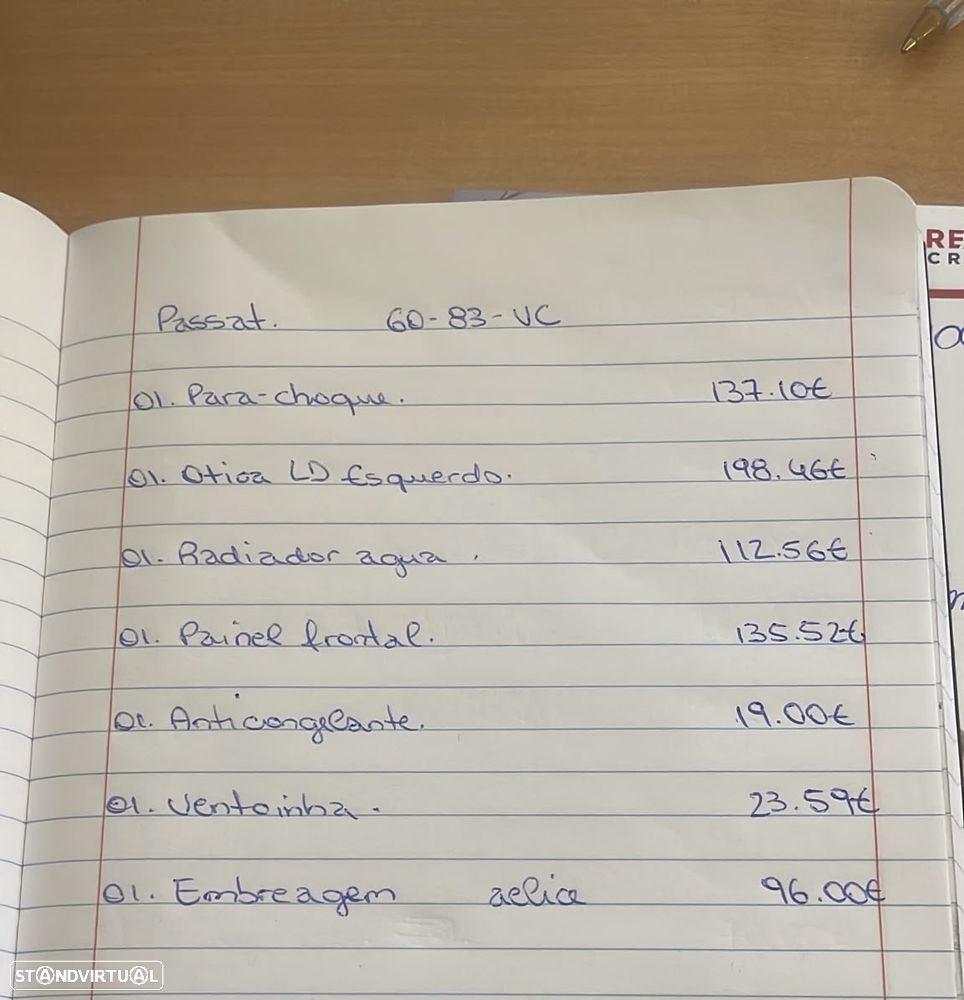 Passat. 60-83-VC
01. Para-choque. 137.10€
01. Otica LD Esquerdo. 198.46€
01. Radiador agua. 112.56€
01. Painel frontal. 135.52€
01. Anticongelante. 19.00€
01. Ventoinha. 23.59€
01. Embreagem aelice 96.00€
RE
CR
STANDVIRTUAL